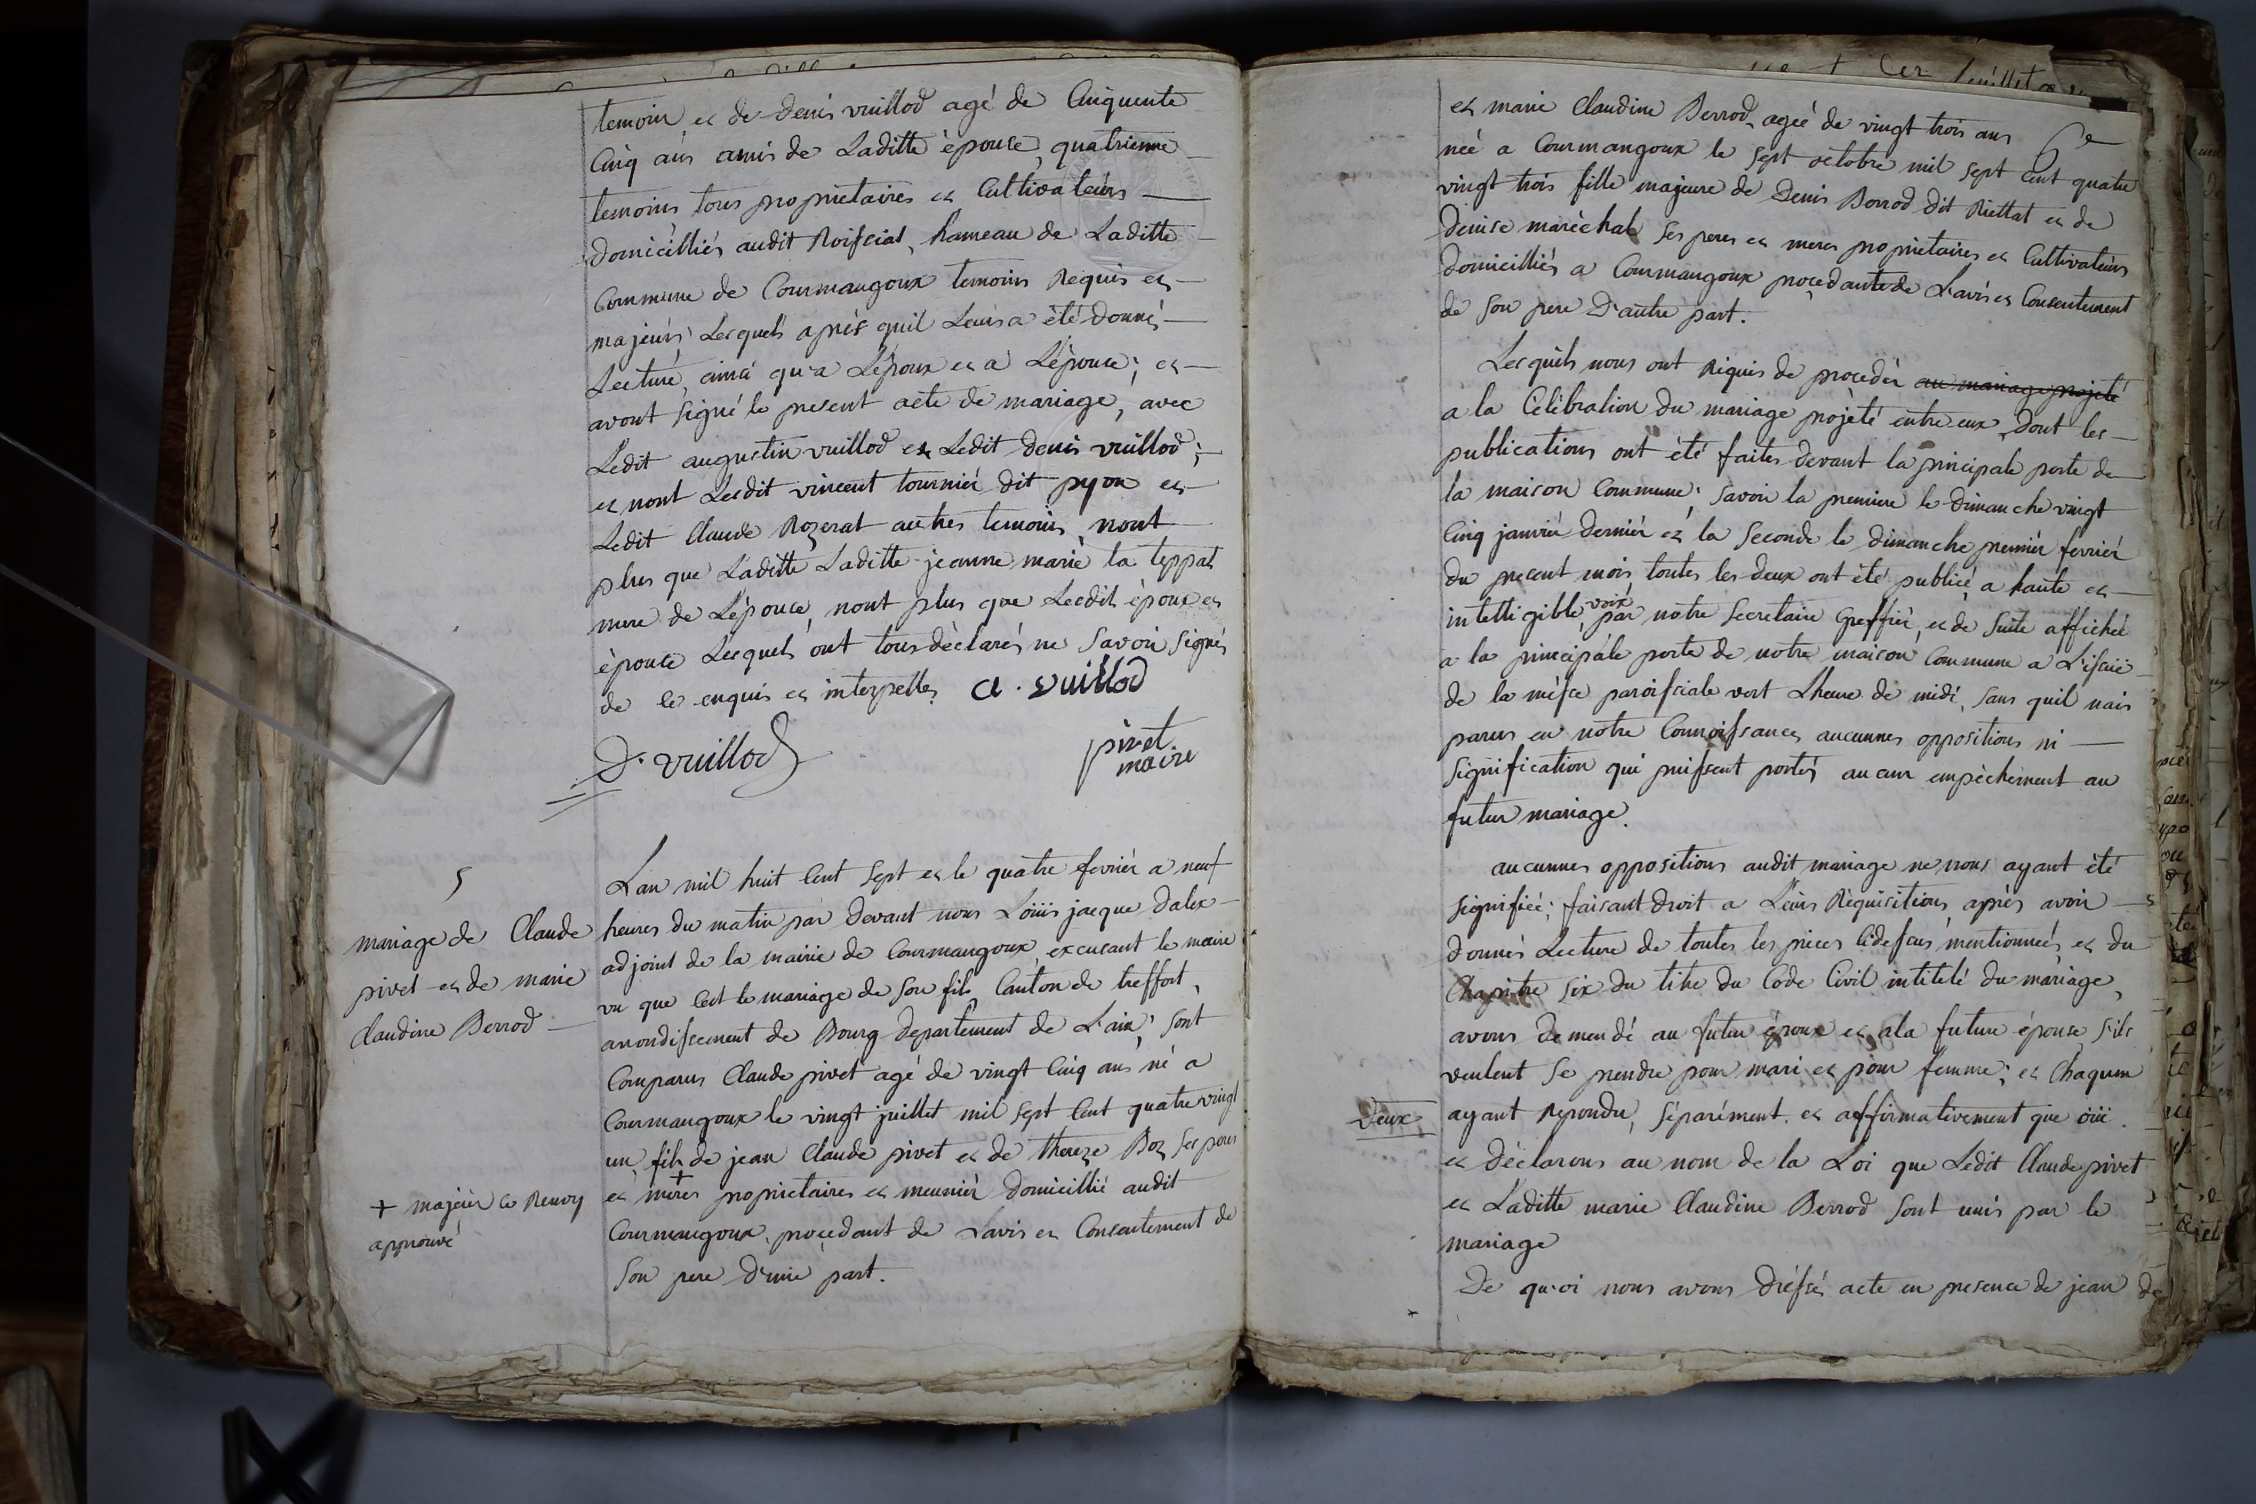 temoin, et de Denis vuillod agé de Cinquente
Cinq ans amis de Laditte épouse, quatrieme
temoins tous proprietaires et Cultivateurs
domiciliés audit Roissiat, hameau de Laditte
Commune de Courmangoux temoins Requis et
majeurs Lesquels après quil Leurs a été donnés
Lecture, ainsi qu'a L'époux et a L'épouse; et
avont signé le present acte de mariage, avec
Ledit augustin vuillod et Ledit denis vuillod;
et nont Lesdit vincent tournier dit pyon et
Ledit Claude Rozerat autres temoins, nont
plus que Laditte Laditte jeanne marie la teppat
mere de L'épouce, nont plus que Lesdit époux et
épouce Lesquels ont tous déclarés ne savoir signés
de ce enquis et interpellés. a. vuillod
D. vuillod
pivet
maire
5
mariage de Claude
pivet et de marie
Claudine Berrod
Lan mil huit Cent sept et le quatre fevriér a neuf
heures du matin par devant nous Loüis jacque dalex
adjoint de la mairie de Courmangoux, excusant le maire
vu que Cest le mariage de son fils, Canton de treffort,
arrondissement de Bourg departement de L'ain, sont
Comparus Claude pivet agé de vingt Cinq ans né a
Courmangoux le vingt juillet mil sept Cent quatre vingt
un, fils de jean Claude pivet et dethereze Boz ses peres
+
et meres proprietaires et meuniér domicillié audit
Courmangoux, procedant de Lavis et Consentement de
son pere d'une part.
+ majeur ce Renvoy
approuvé
6e
et marie Claudine Berrod, ageé de vingt trois ans
neé a Courmangoux le sept octobre mil sept Cent quatre
vingt trois fille majeure de Denis Borrod dit Riettat et de
Denise maréchal ses peres et meres proprietaires et Cultivateurs
domicilliés a Courmangoux procedante de L'avis et Consentement
de son pere D'autre part.
Lesquels nous ont Réquis de procedér au mariage projeté
a la Célébration du mariage projèté entre eux, dont les
publications ont été faites devant la principale porte de
la maison Commune; savoir la premiere le dimanche vingt
Cinq janvier derniér et la seconde le dimanche premiér fevriér
du present mois, toutes les deux ont été publié, a haute et
voix
intelligible, par notre secretaire Greffiér, et de suite affichée
a la principale porte de notre maison Commune a L'issuë
de la mésse paroissiale vert Lheure de midi, sans quil nais
parus en notre Connoissances aucunnes oppositions ni
signification qui puissent portés aucun empèchement au
futur mariage.
aucunnes oppositions audit mariage ne nous ayant été
signifiée; faisant droit a Leurs Réquisitions, après avoir
donnés Lecture de toutes les pieces Cidessus mentionneés et du
Chapitre six du titre du Code Civil intitelé du mariage,
avons demendé au futur époux et ala future épouse s'ils
veulent se prendre pour mari et pour femme; et Chaqum
Deux
ayant Repondu, séparément et affirmativement que oüi.
et déclarons au nom de la Loi que Ledit Claude pivet
et Laditte marie Claudine Berrod sont unis par le
mariage
De qu'oi nous avons dréssé acte en presence de jean de